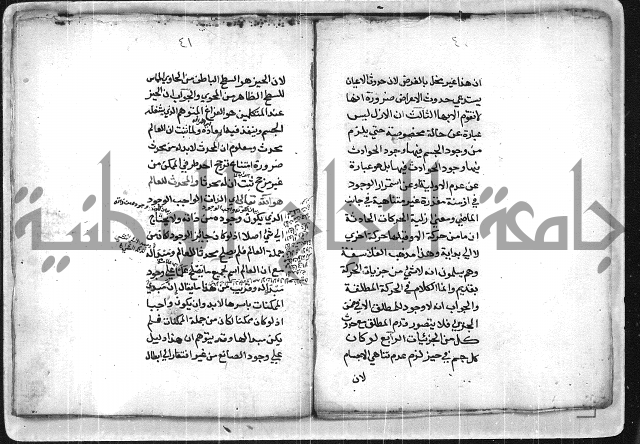 ٤٠
ان هذا غير مخل بالفرض لان حدوث الاعيان
يستدعي حدوث الاعراض ضرورة انها
لا تقوم الا بها الثالث ان الازل ليس
عبارة عن حالة مخصوصة حتى يلزم
من وجود الجسم فيها وجود الحوادث
فيها وجود الحوادث فيها بل هو عبارة
عن عدم الاولية او عن استمرار الوجود
في ازمنة مقدرة غير متناهية في جانب
الماضي ومعنى ازلية الحركات الحادثة
انه ما من حركة الا وقبلها حركة اخرى
لا الى بداية وهذا مذهب الفلاسفة
وهم يسلمون انه لا شي من جزئيات الحركة
بقديم وانما الكلام في الحركة المطلقة
والجواب انه لا وجود للمطلق الا في ضمن
الجزئي فلا يتصور قدم المطلق مع حدوث
كل من الجزئيات الرابع لو كان
كل جسم في حيز لزم عدم تناهي الاجسام
لان
٤١
لان الحيز هو السطح الباطن من الحاوي المماس
للسطح الظاهر من المحوي والجواب ان الحيز
عند المتكلمين هو الفراغ المتوهم الذي يشغله
الجسم وينفذ فيه ابعاده ولما ثبت ان العالم
محدث ومعلوم ان المحدث لابد له من محدث
ضرورة امتناع ترجح احد طرفي الممكن من
غير مرجح ثبت ان له محدثا والمحدث للعالم
هو الله تعالى اي الذات الواجب الوجود
الذي يكون وجوده من ذاته ولا يحتاج
الى شي اصلا اذ لو كان جايز الوجود لكان من
جملة العالم فلم يصلح محدثا للعالم ومبدا له
مع ان العالم اسم لجميع ما يصلح علما على وجود
مبدا له وقريب من هذا ما يقال ان مبدي
الممكنات باسرها لابد وان يكون واجبا
اذ لو كان ممكنا لكان من جملة الممكنات فلم
يكن مبدا لها وقد يتوهم ان هذا دليل
على وجود الصانع من غير افتقار الى ابطال
جامعة النجاح الوطنية